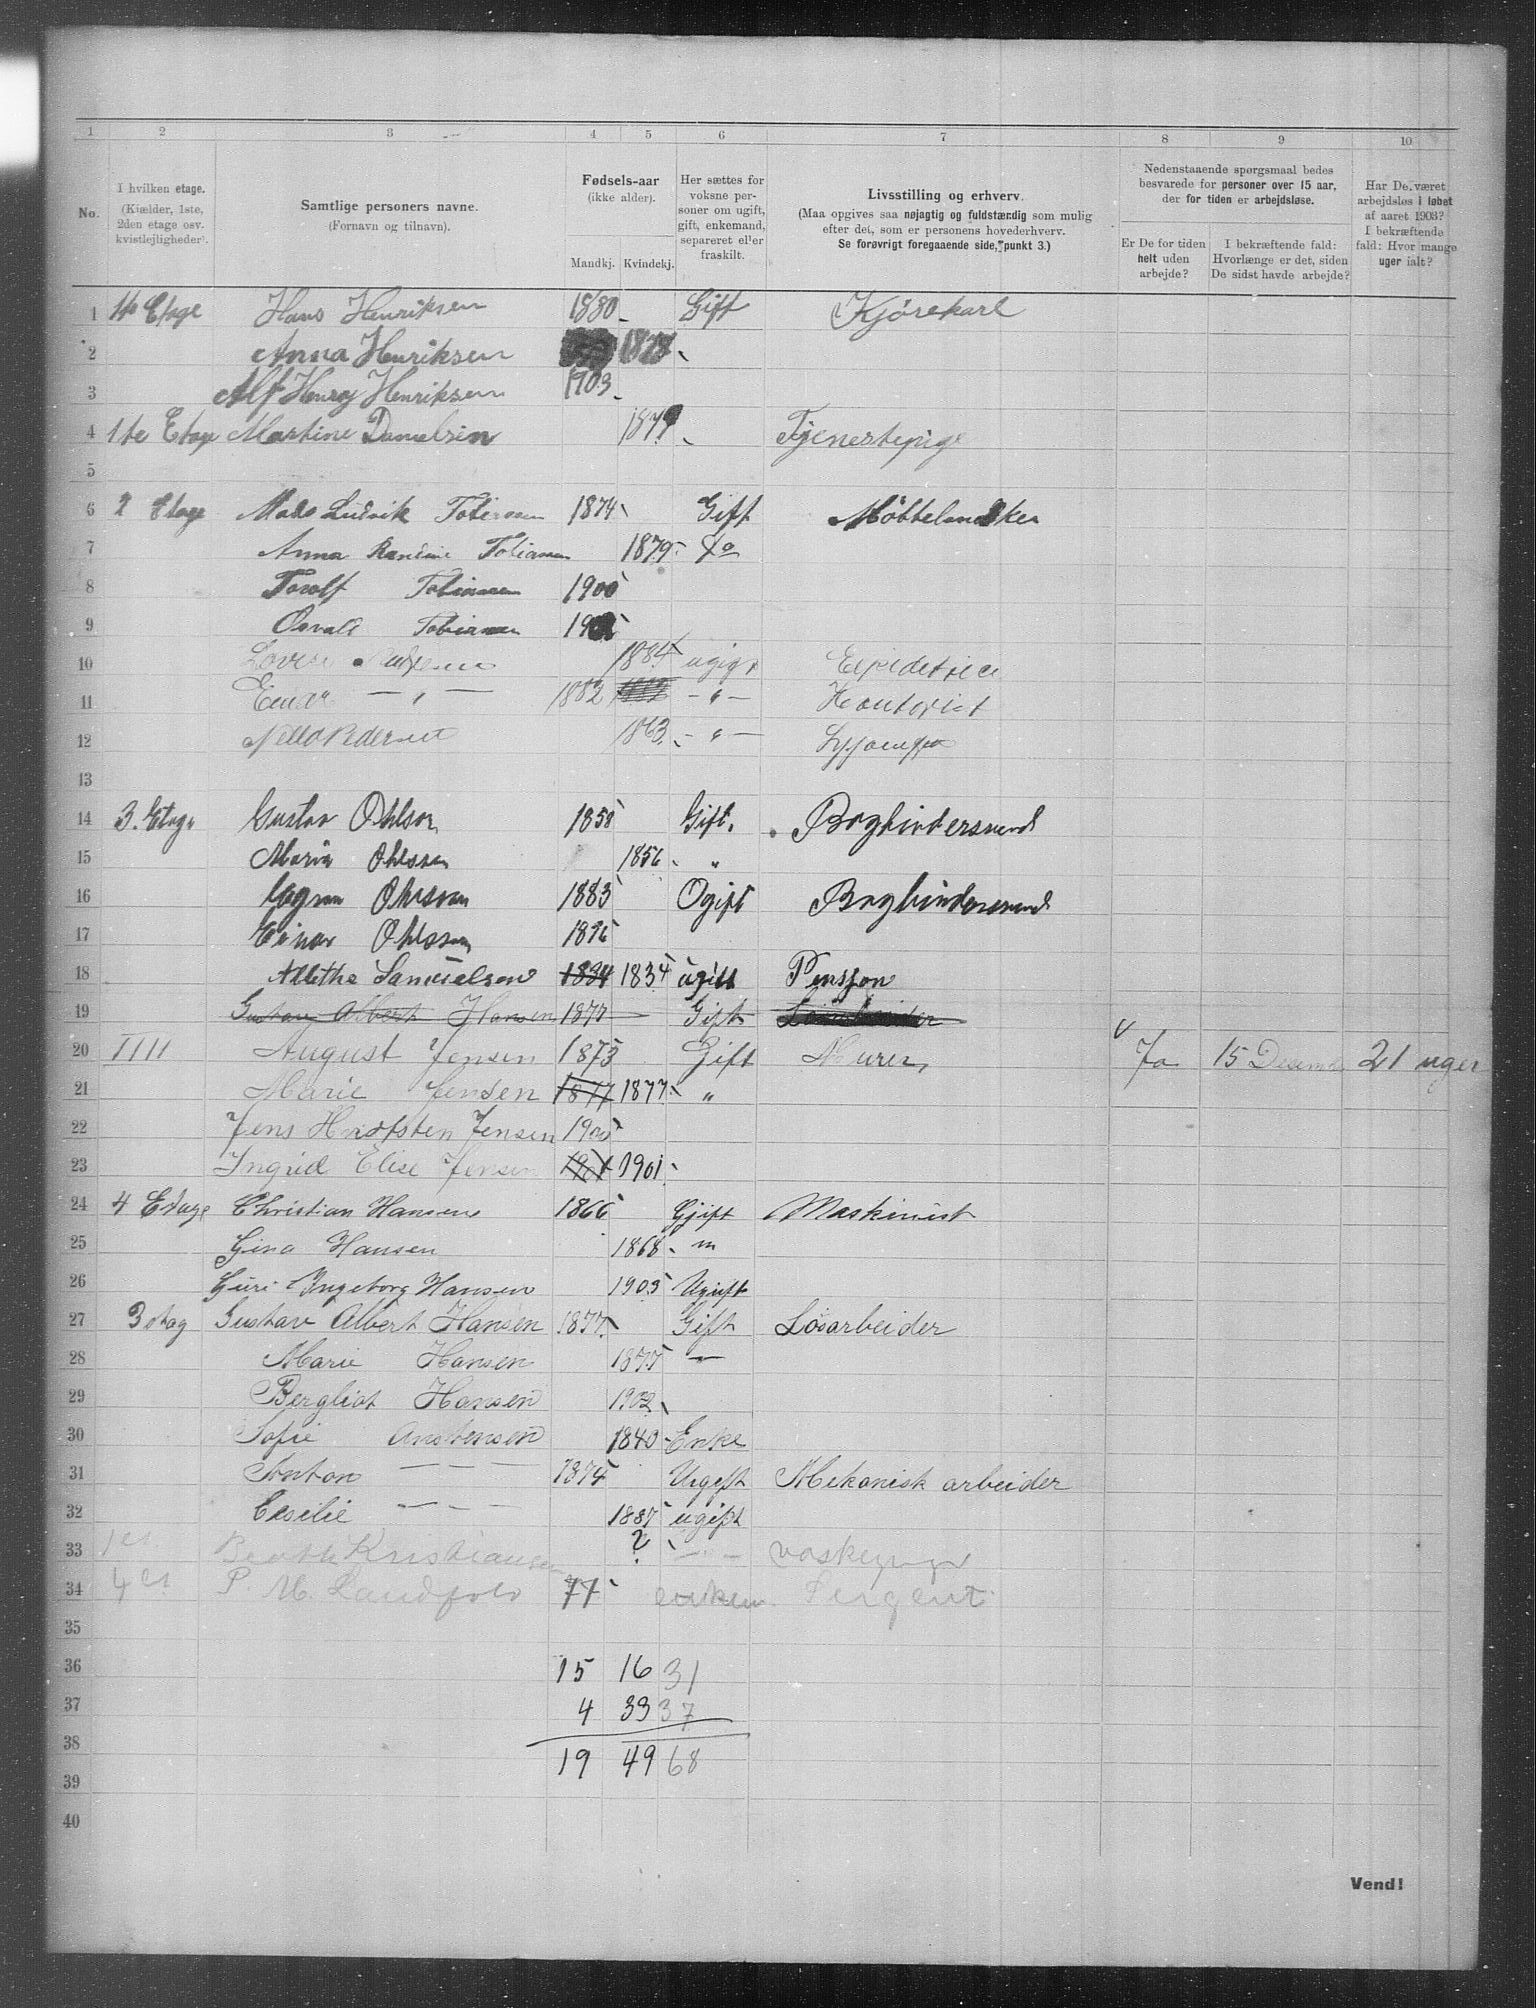 1 2 3 4 5 6 7 8 9 10
No. I hvilken etage. (Kjælder, 1ste, 2den etage osv. kvistlejligheder). Samtlige personers navne. (Fornavn og tilnavn). Fødsels-aar (ikke alder). Mandkj. Kvindekj. Her sættes for voksne personer om ugift, gift, enkemand, separeret eller fraskilt. Livsstilling og erhverv. (Maa opgives saa nøjagtig og fuldstændig som mulig efter det, som er personens hovederhverv. Se forøvrigt foregaaende side, punkt 3.) Nedenstaaende spørgsmaal bedes besvarede for personer over 15 aar, der for tiden er arbejdsløse. Er De for tiden helt uden arbejde? I bekræftende fald: Hvorlænge er det, siden De sidst havde arbejde? Har De været arbejdsløs i løbet af aaret 1903? I bekræftende fald: Hvor mange uger ialt?
1 1te Etage Hans Henriksen 1880 Gift Kjørekarl
2 Anna Henriksen 1878
3 Alf Henry Henriksen 1903
4 1te Etage Martine Danielsen 1879 Tjenestepige
5
6 2 Etage Mads Ludvik Tobiesen 1874 Gift Møbbelsnedker
7 Anna Tobiasen 1879 Do
8 Torolf Tobiasen 1900
9 Osvald Tobiasen
10 1884 ugift Expeditrice
11 Einar — " — 1882 1882 — " — Kontorist
12 Pedersen 1863 — " —
13
14 3. Etage Gustav Ohlson 1858 Gift. Bogbindersvend
15 Maria Ohlsson 1856 "
16 Ohlsson 1883 Ogift Bogbindersvend
17 Einar Ohlsson 1896
18 Alethe Samuelsen 1834 1834 ugift Pensjon
19 Gustav Albert Hansen 1877 Gift Løsarbeider
20 IIII August Jensen 1873 Gift Murer, Ja 15 Desember 21 uger
21 Marie Jensen 1877 1877 "
22 Jens Jensen 1900
23 Ingrid Elise Jensen 1901 1901
24 4 Etage Christian Hansen 1866 Gjift Maskinist
25 Gina Hansen 1868 "
26 Guri Ingeborg Hansen 1903 Ugift
27 3 etag Gustav Albert Hansen 1877 Gift Løsarbeider
28 Marie Hansen 1877 —
29 Bergliot Hansen 1902
30 Sofie Anstensen 1840 Enke
31 Anton — — — 1874 Ugift Mekanisk arbeider
32 Cesilie — — — 1887 ugift
33 1 et. Kristiansen ? — " —
34 4 et. P. M. Landfold 77 enkem. Sergent
35
36 15 16 31
37 4 33 37
38 19 49 68
39
40
Vend!